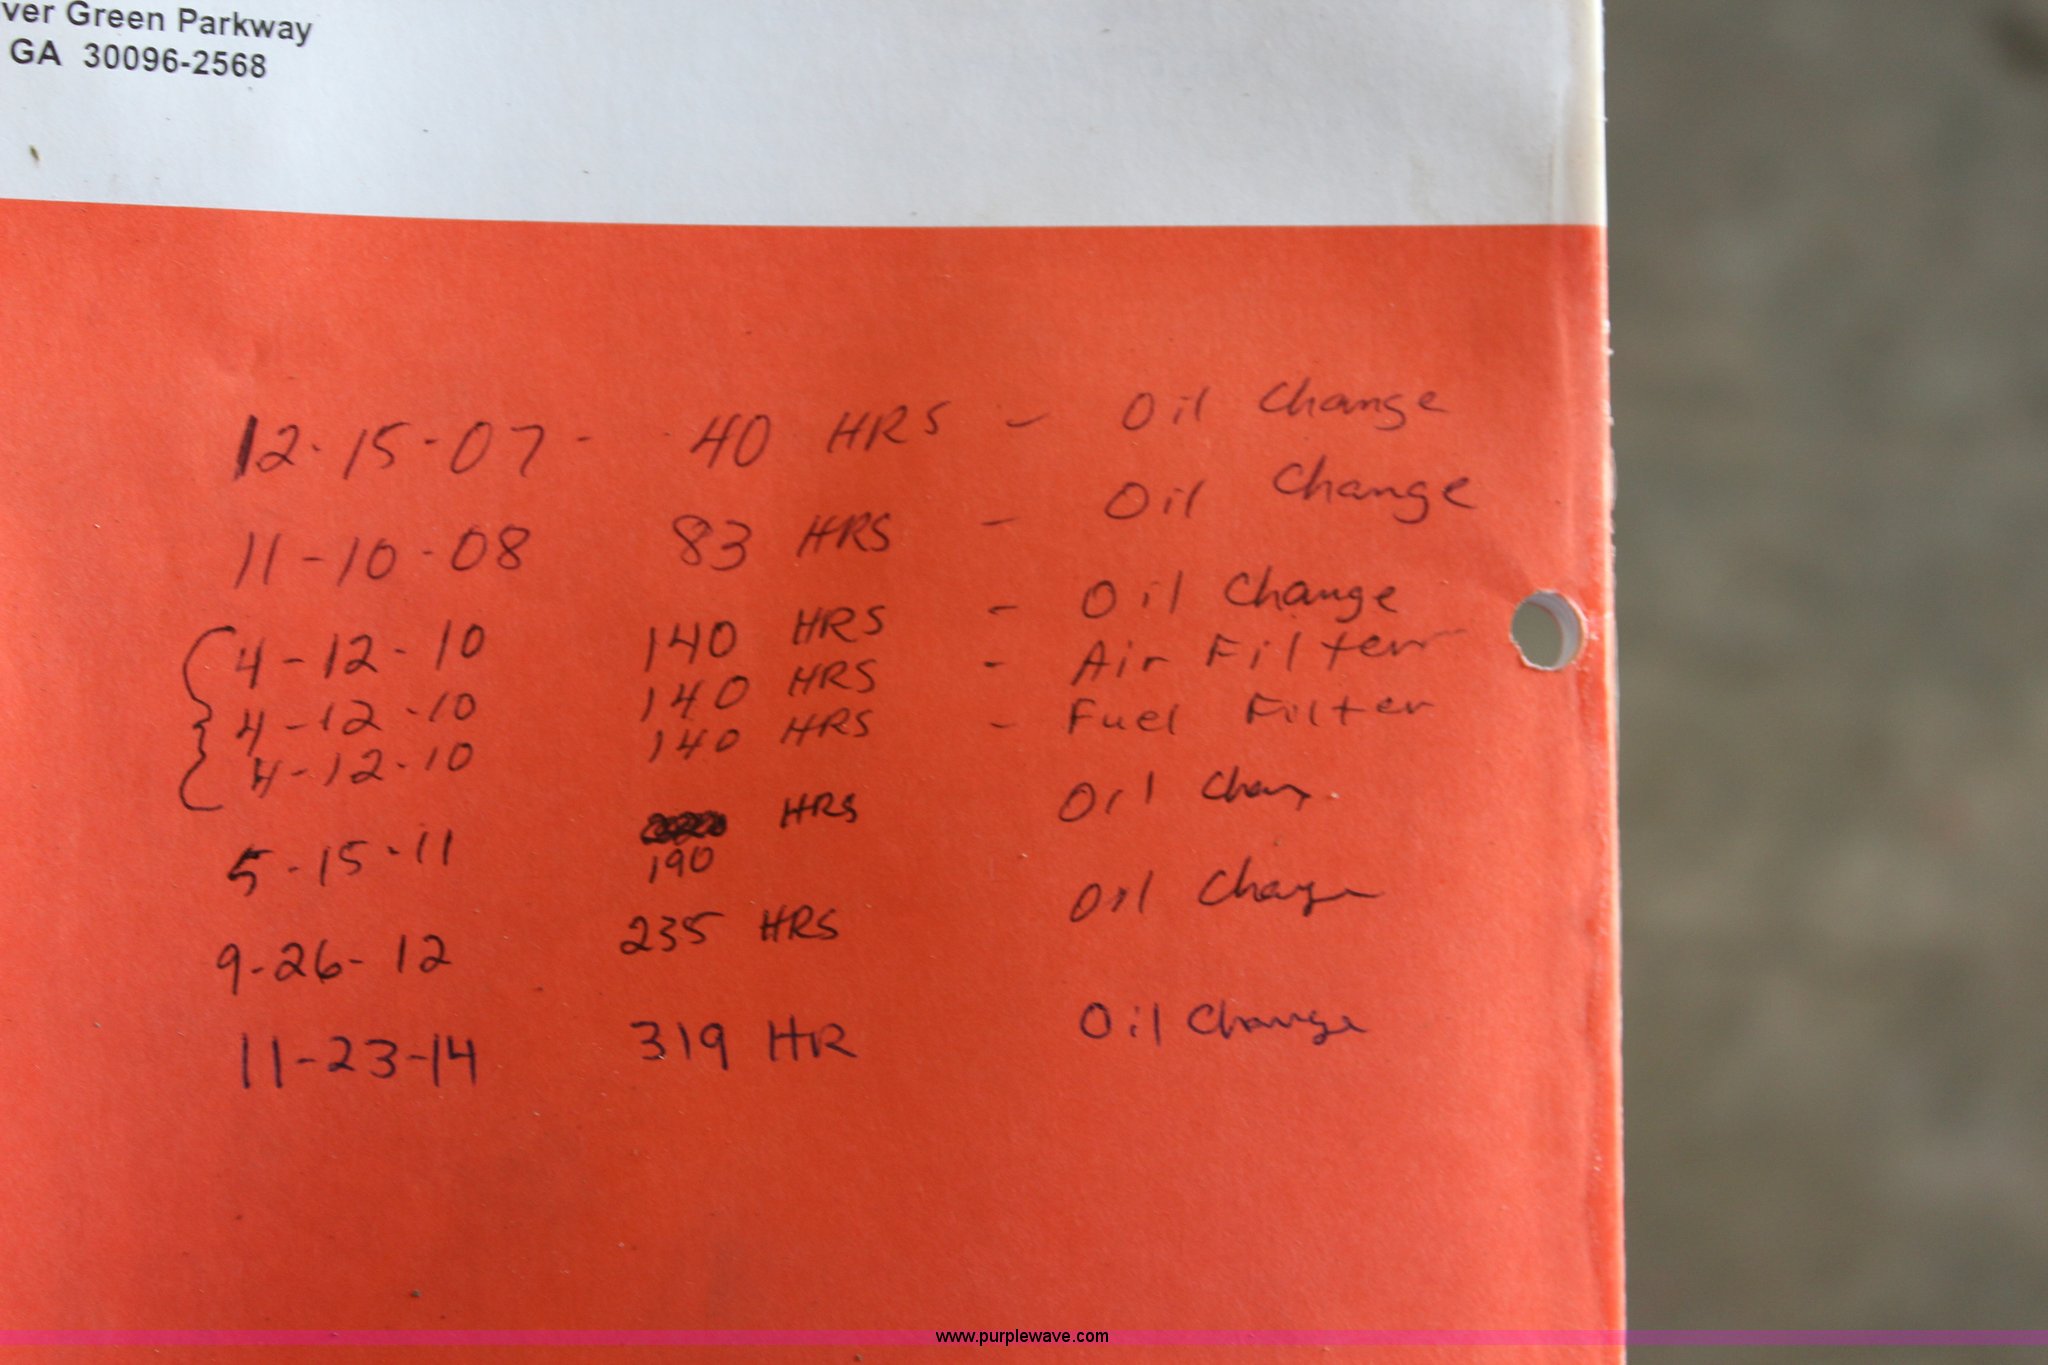 ver Green Parkway
GA 30096-2568
12-15-07 - 40 HRS - Oil Change
11-10-08 83 HRS - Oil Change
4-12-10 140 HRS - Oil Change
4-12-10 140 HRS - Air Filter
4-12-10 140 HRS - Fuel Filter
5-15-11 HRS Oil Chang
190
9-26-12 235 HRS Oil Change
11-23-14 319 HR Oil Change
www.purplewave.com